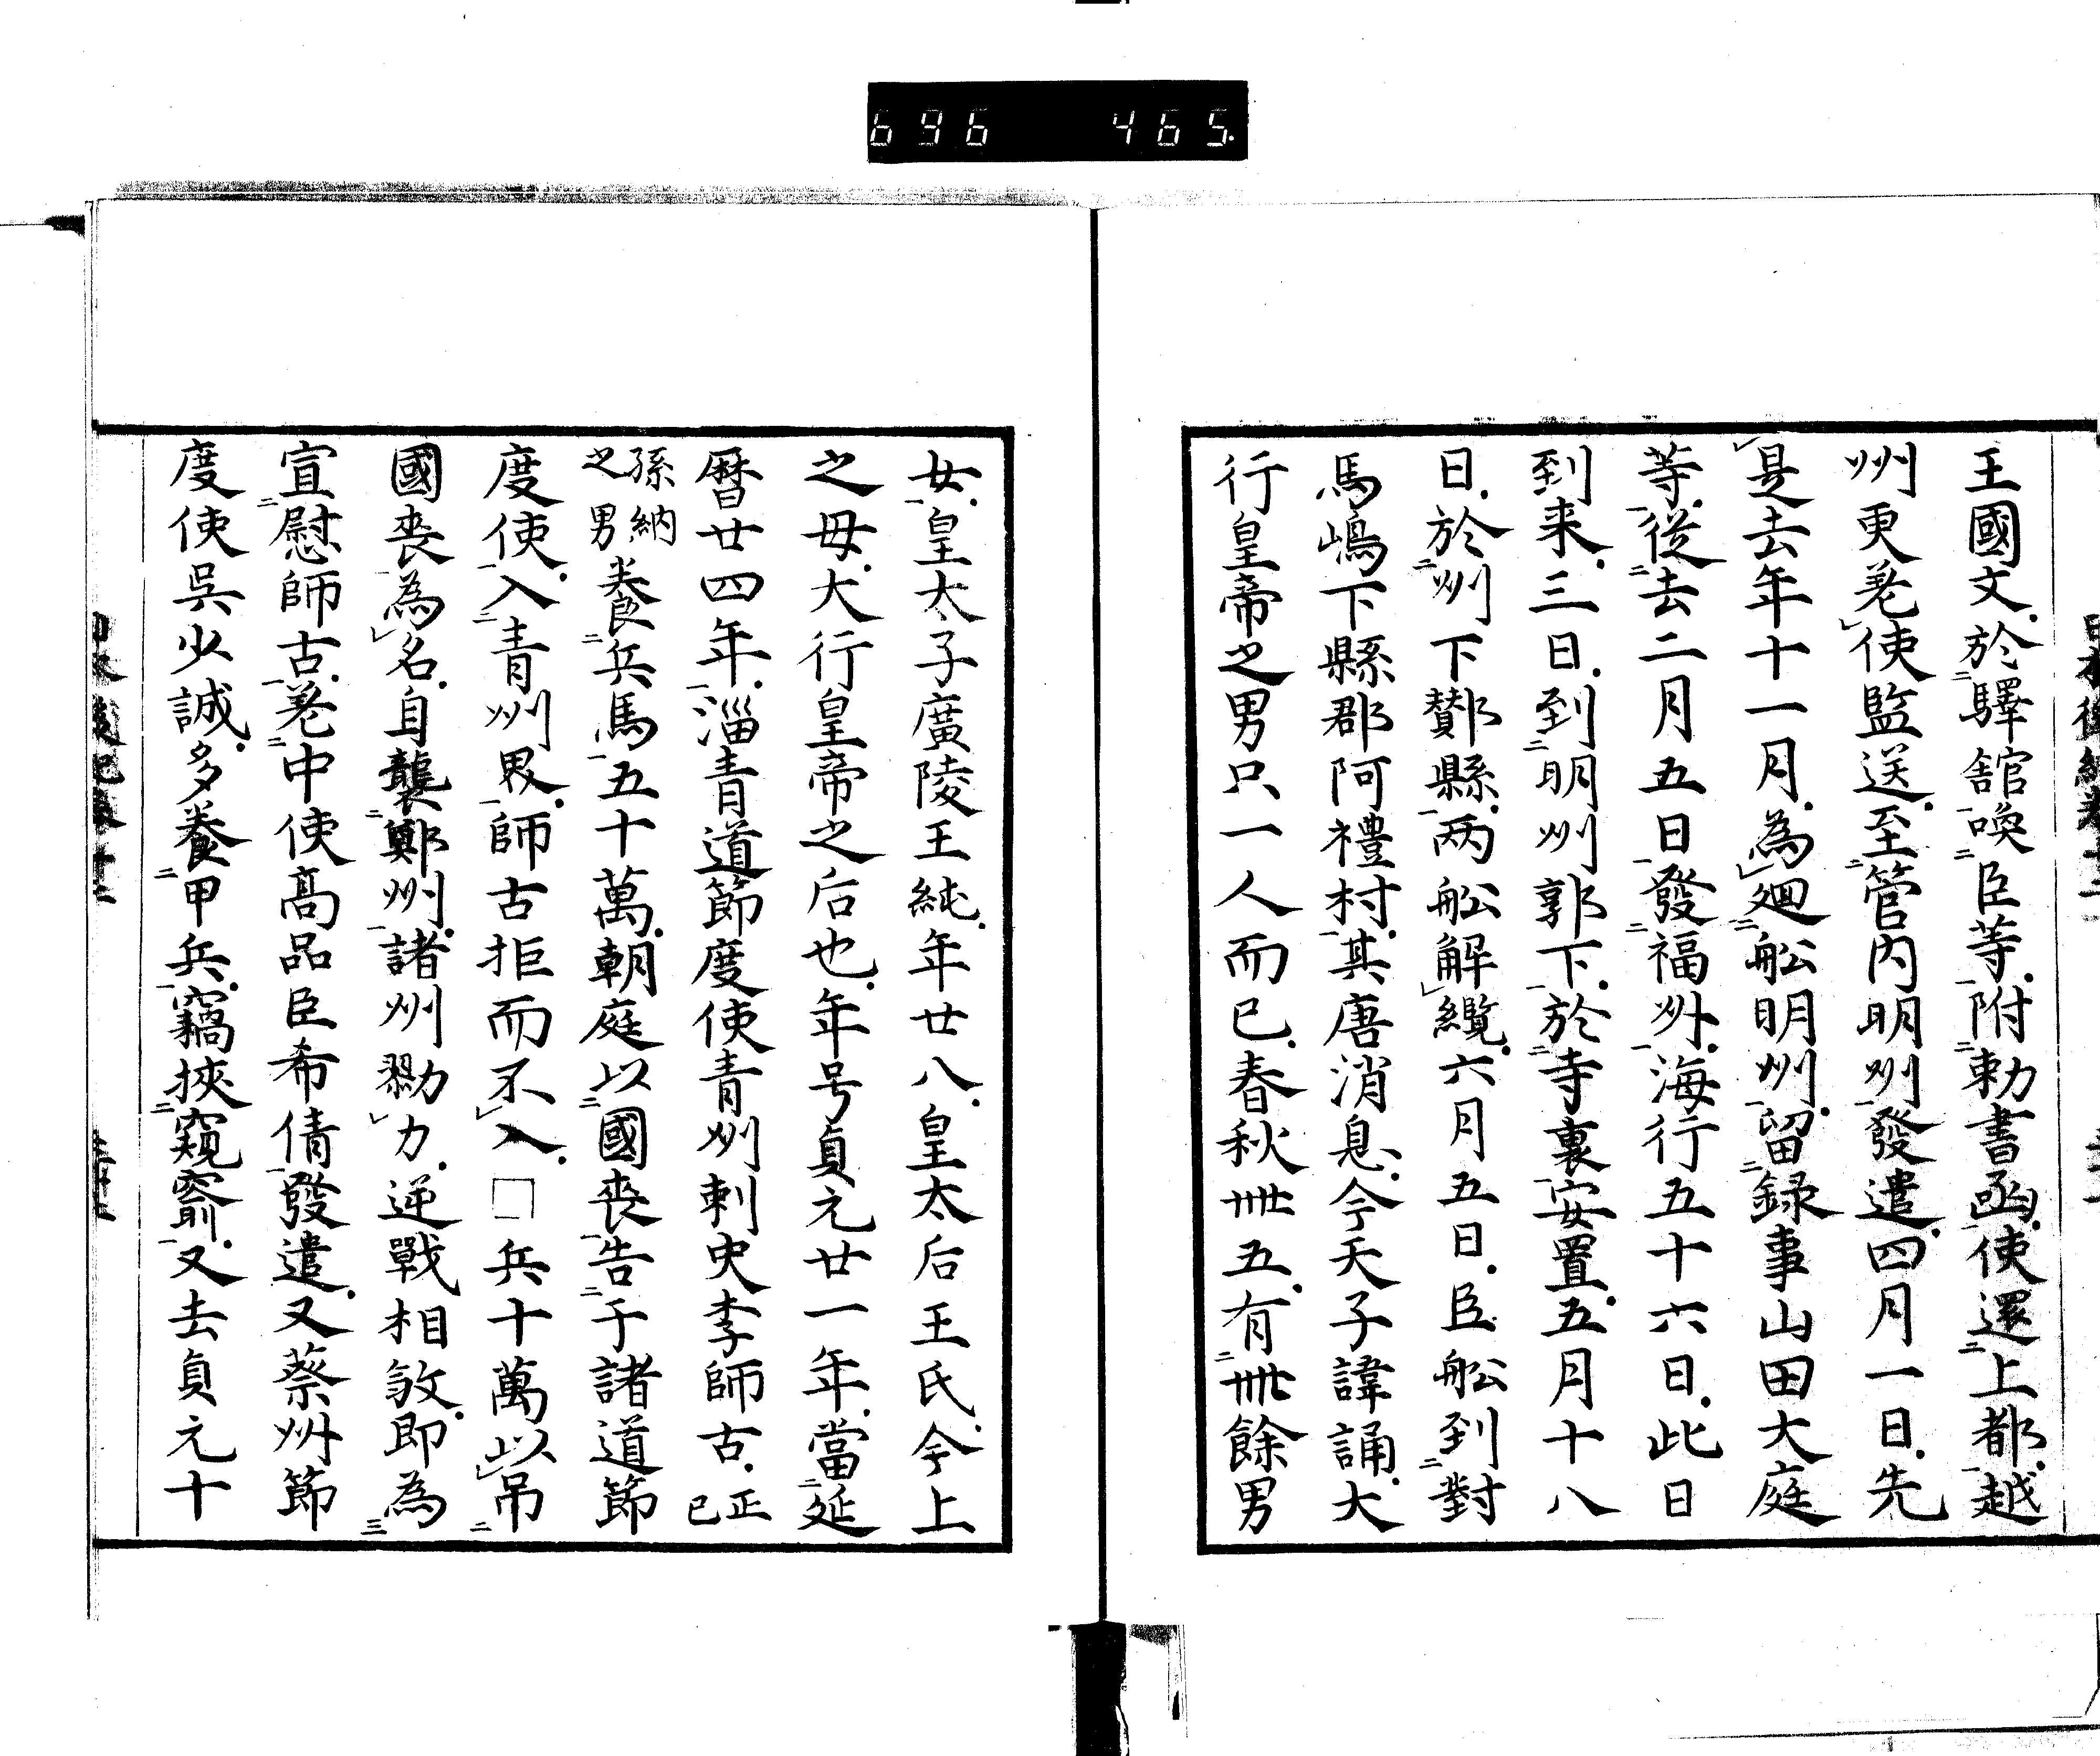 696 465
王國文於驛舘喚臣等附勅書函使還上都越
州更差使監送至管內明州發遣四月一日先
是去年十一月為廻舩明州留録事山田大庭
等從去二月五日發福州海行五十六日此日
到来三日到明州郭下於寺裏安置五月十八
日於州下鄮縣两舩解纜六月五日臣舩到對
馬嶋下縣郡阿禮村其唐消息今天子諱誦大
行皇帝之男只一人而已春秋卌五有卌餘男
女皇太子廣陵王純年廿八皇太后王氏今上
之母大行皇帝之后也年号貞元廿一年當延
暦廿四年淄青道節度使青州刺史李師古正已
孫納之男養兵馬五十萬朝庭以國喪告于諸道節
度使入青州界師古拒而不入□兵十萬以吊
國喪為名自襲鄭州諸州勠力逆戰相敓即為
宣慰師古差中使高品臣希倩發遣又蔡州節
度使吳少誠多養甲兵竊挾窺窬又去貞元十